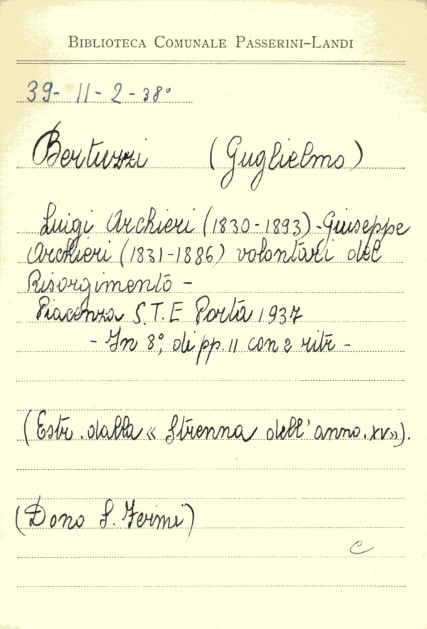 BIBLIOTECA COMUNALE PASSERINI-LANDI
39- 11-2-38°
Bertuzzi (Guglielmo)
Luigi Archieri (1830-1893)-Giuseppe
Archieri (1831-1886) volontari del
Risorgimento -
Piacenza S.T.E Porta 1937
- In 8°, di pp. 11 con 2 ritr -
(Estr. dalla « Strenna dell'anno. XV»).
(Dono S. Fermi)
c